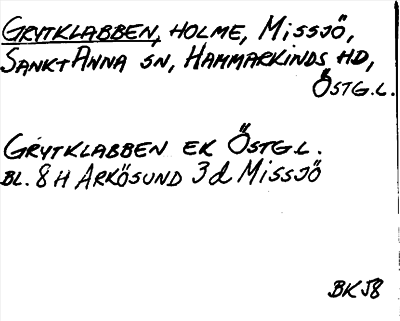 GRYTKLABBEN, HOLME, MISSJÖ,
SANKT ANNA SN, HAMMARKINDS HD,
ÖSTG.L.
GRYTKLABBEN EK ÖSTG.L.
BL. 8 H ARKÖSUND 3d MISSJÖ
BK58